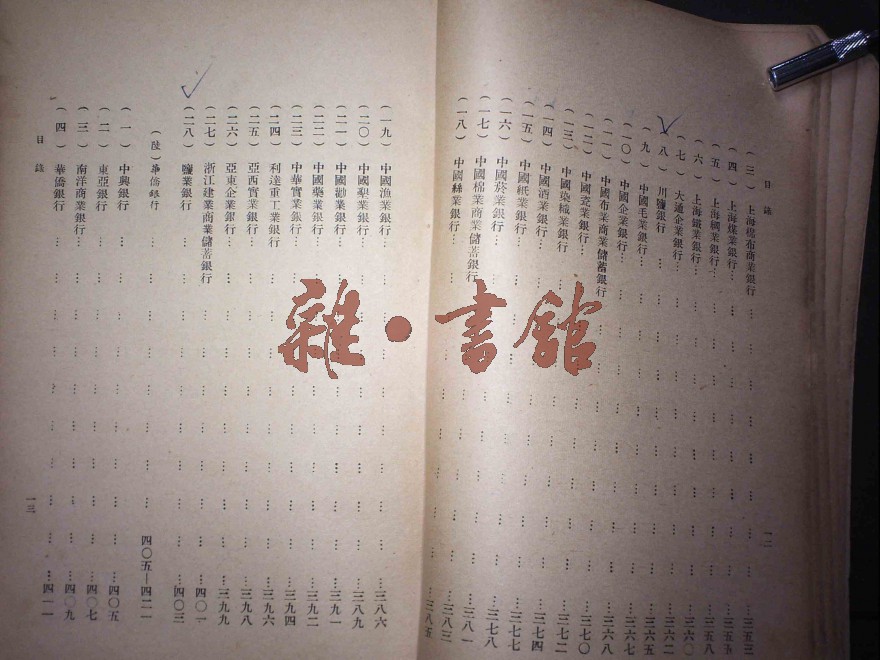 目錄
(三) 上海棉布商業銀行…三五三
(四) 上海煤業銀行…三五五
(五) 上海綢業銀行…三五八
(六) 上海鐵業銀行…三六〇
(七) 大通企業銀行…三六二
(八) 川鹽銀行…三六五
(九) 中國毛業銀行…三六七
(一〇) 中國企業銀行…三六八
(一一) 中國布業商業儲蓄銀行…三七〇
(一二) 中國瓷業銀行…三七二
(一三) 中國染織業銀行…三七四
(一四) 中國酒業銀行…三七七
(一五) 中國紙業銀行…三七八
(一六) 中國菸業銀行…三八一
(一七) 中國棉業商業儲蓄銀行…三八三
(一八) 中國絲業銀行…三八五
一二
(一九) 中國漁業銀行…三八六
(二〇) 中國墾業銀行…三八九
(二一) 中國勸業銀行…三九一
(二二) 中國藥業銀行…三九二
(二三) 中華實業銀行…三九四
(二四) 利達重工業銀行…三九六
(二五) 亞西實業銀行…三九八
(二六) 亞東企業銀行…三九九
(二七) 浙江建業商業儲蓄銀行…四〇一
(二八) 鹽業銀行…四〇三
(陸) 華僑銀行…四〇五—四二一
(一) 中興銀行…四〇五
(二) 東亞銀行…四〇七
(三) 南洋商業銀行…四〇九
(四) 華僑銀行…四一一
目錄
一三
雜·書館